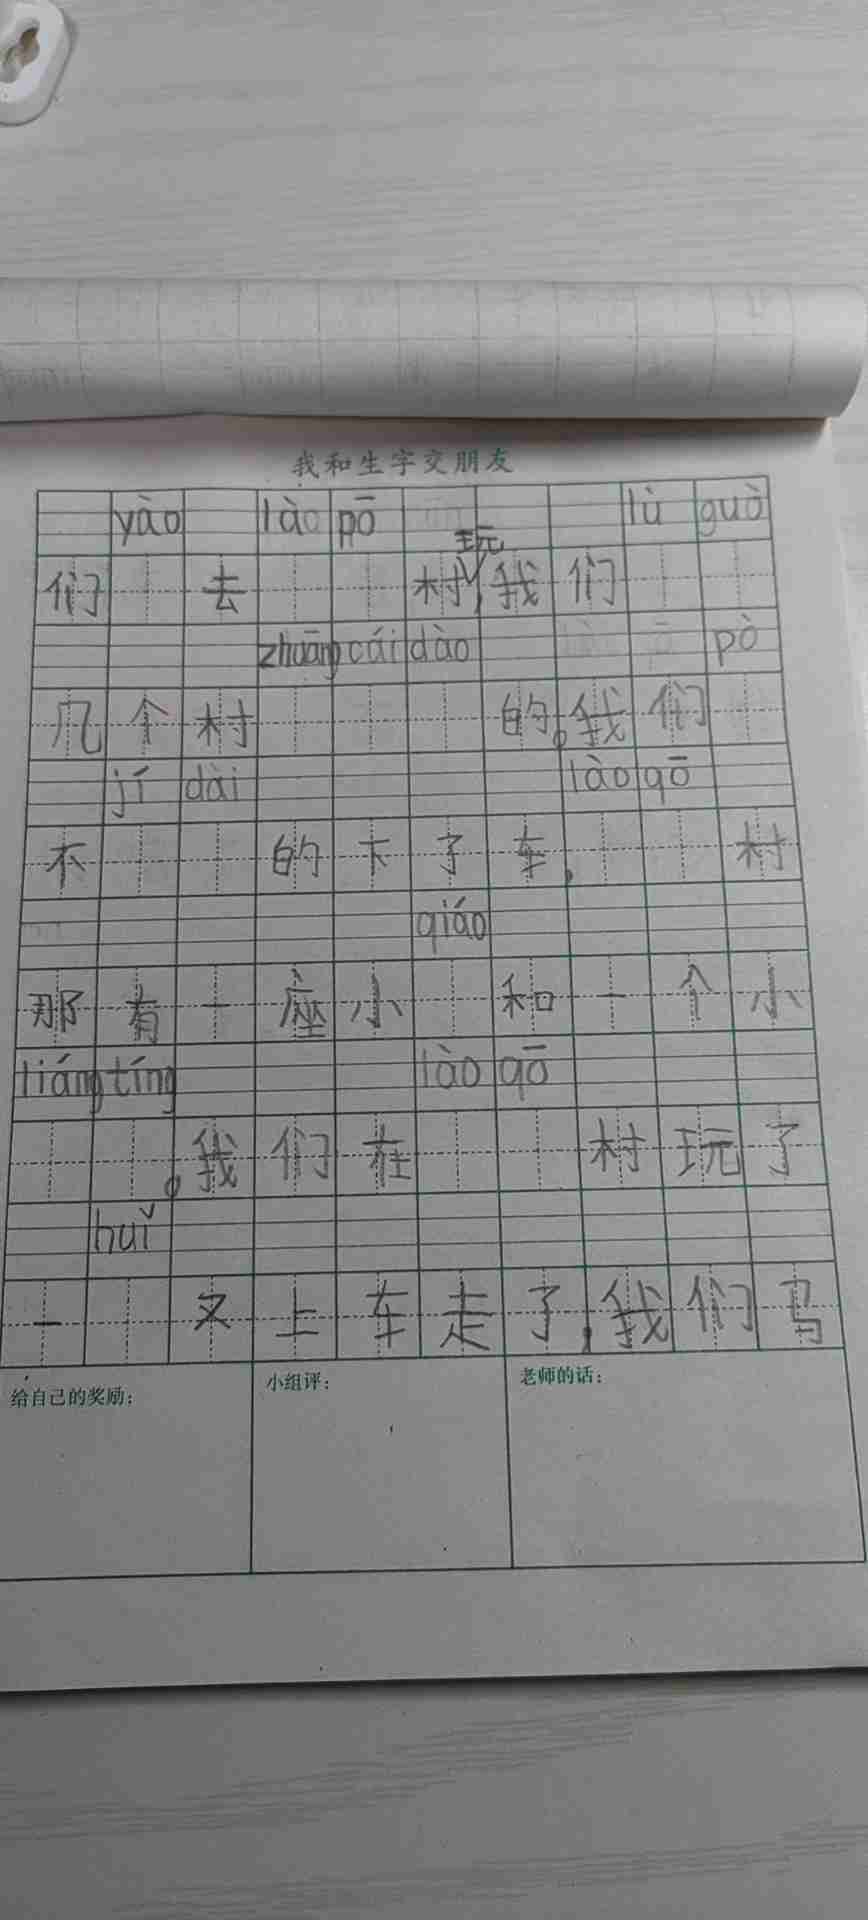 我和生字交朋友
yào lào pō lù guò
玩
们 去 村,我们
zhuāng cái dào pò
几个村 的。我们
jí dài lào qō
不 的下了车, 村
qiáo
那有一座小 和一个小
liáng tíng lào qō
。我们在 村玩了
huǐ
一 又上车走了,我们马
给自己的奖励:
小组评:
老师的话: